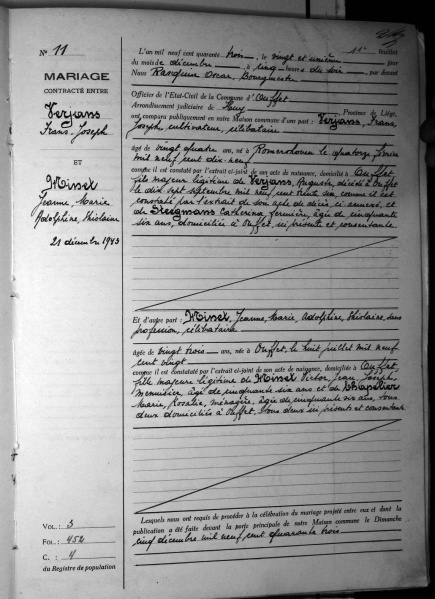 N° 11
MARIAGE
CONTRACTÉ ENTRE
Verjans
Frans, Joseph
ET
Minet
Jeanne, Marie
Adolphine, Ghislaine
21 décembre 1943
VOL.: 3
FOL.: 452
C.: 4
du Registre de population
L'an mil neuf cent quarante trois, le vingt et unième jour
du mois de décembre à cinq heures du soir, par devant
Nous Rasquin Oscar, Bourgmestre
Officier de l'Etat-Civil de la Commune d'Ouffet,
Arrondissement judiciaire de Huy, Province de Liège,
ont comparu publiquement en notre Maison commune d'une part : Verjans, Frans,
Joseph, cultivateur, célibataire
âgé de vingt quatre ans, né à Romershoven le quatorze février
mil neuf cent dix neuf
comme il est constaté par l'extrait ci-joint de son acte de naissance, domicilié à Ouffet,
fils majeur légitime de Verjans, Auguste, décédé à Ouffet
le dix sept septembre mil neuf cent trente six comme il est
constaté par l'extrait de son acte de décès, ci annexé, et
de Catherina, fermière, âgée de cinquante
six ans, domiciliée à Ouffet, ici présente et consentante.
Et d'autre part : Minet, Jeanne, Marie, Adolphine, Ghislaine, sans
profession, célibataire
âgée de vingt trois ans, née à Ouffet, le huit juillet mil neuf
cent vingt
comme il est constaté par l'extrait ci-joint de son acte de naissance, domiciliée à Ouffet,
fille majeure légitime de Minet Victor, Jean, Joseph,
Menuisier, âgé de cinquante six ans et de Chapelier
Marie, Rosalie, ménagère, âgée de cinquante six ans, tous
deux domiciliés à Ouffet, tous deux ici présents et consentants
Lesquels nous ont requis de procéder à la célébration du mariage projeté entre eux et dont la
publication a été faite devant la porte principale de notre Maison commune le Dimanche
cinq décembre mil neuf cent quarante trois